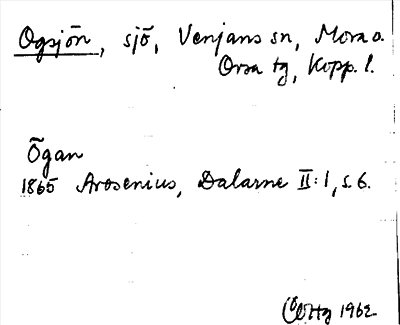 Ogsjön, sjö, Venjans sn, Mora o.
Orsa tg, Kopp. l.
Ögan
1865 Arosenius, Dalarne II:1, s. 6.
1962